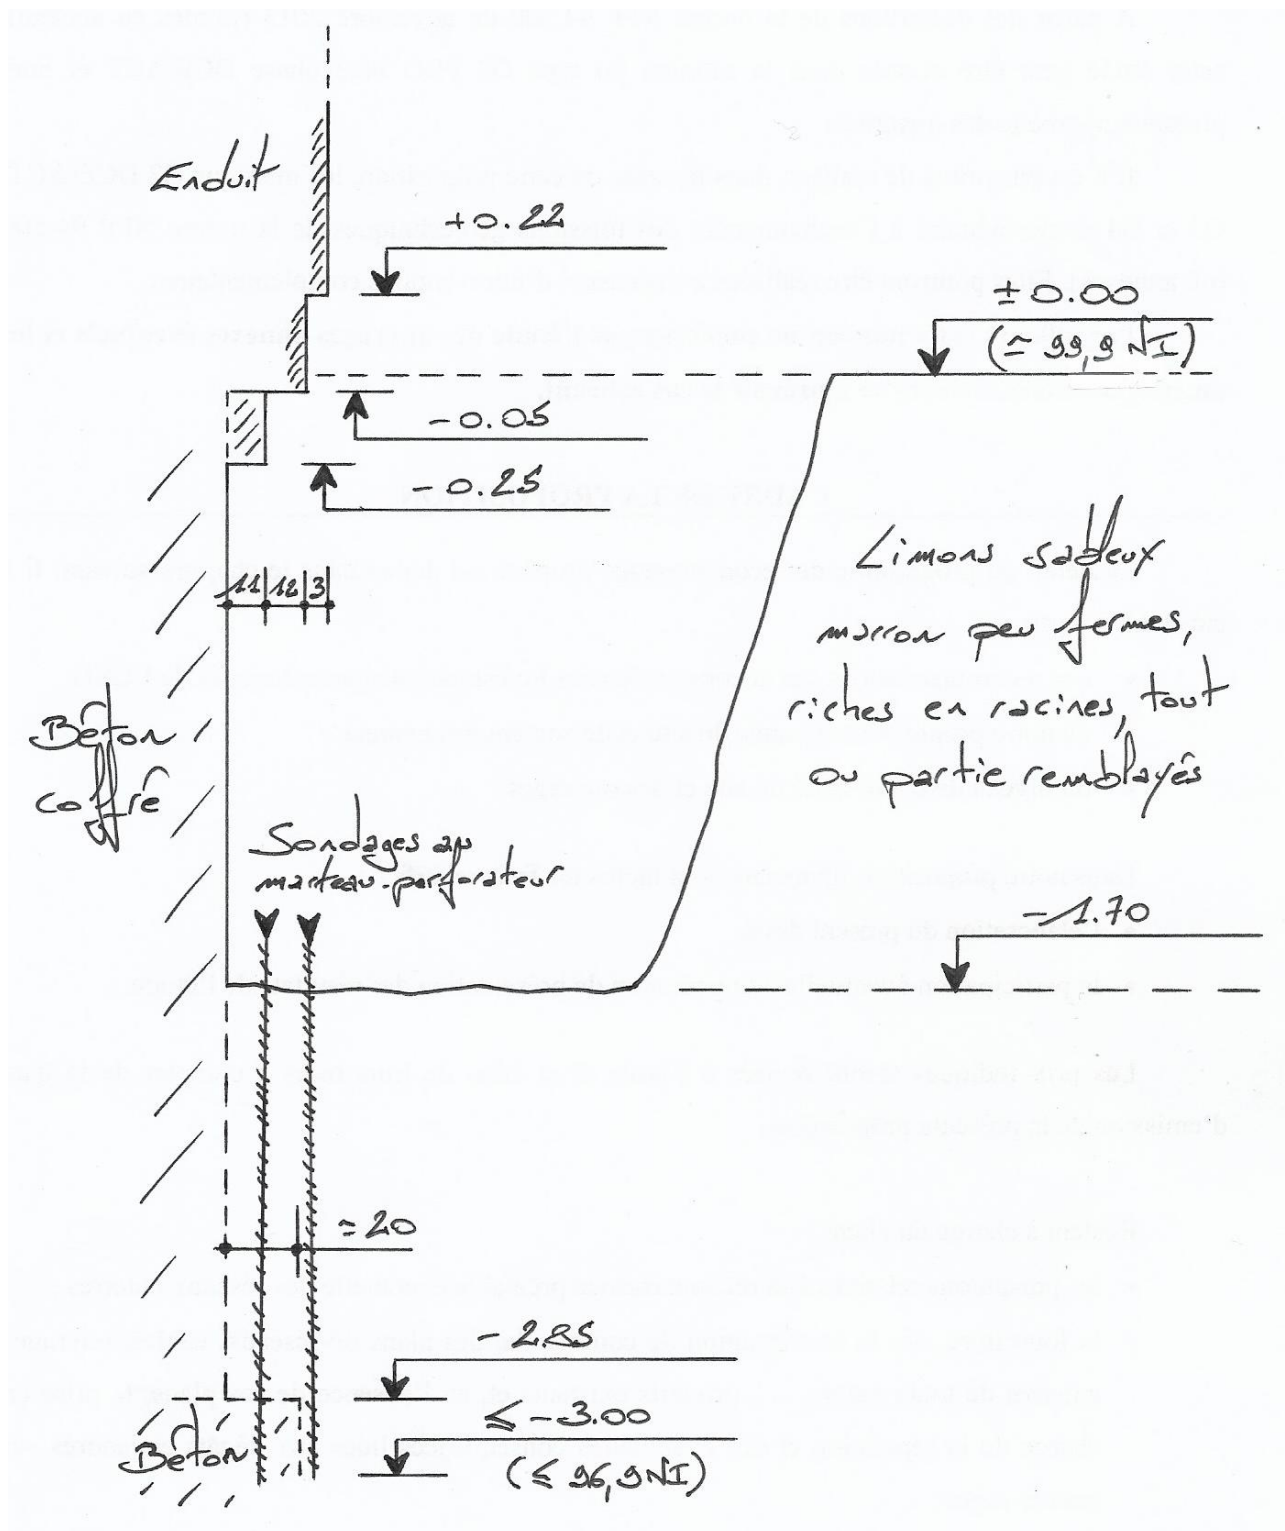 Enduit
+0.22
±0.00
(≃ 99,9 NI)
-0.05
-0.25
Limons sableux
marron peu fermes,
riches en racines, tout
ou partie remblayés
11 12 3
Béton
coffré
Sondages au
marteau-perforateur
-1.70
≃20
-2.85
≤ -3.00
(≤ 96,9 NI)
Béton